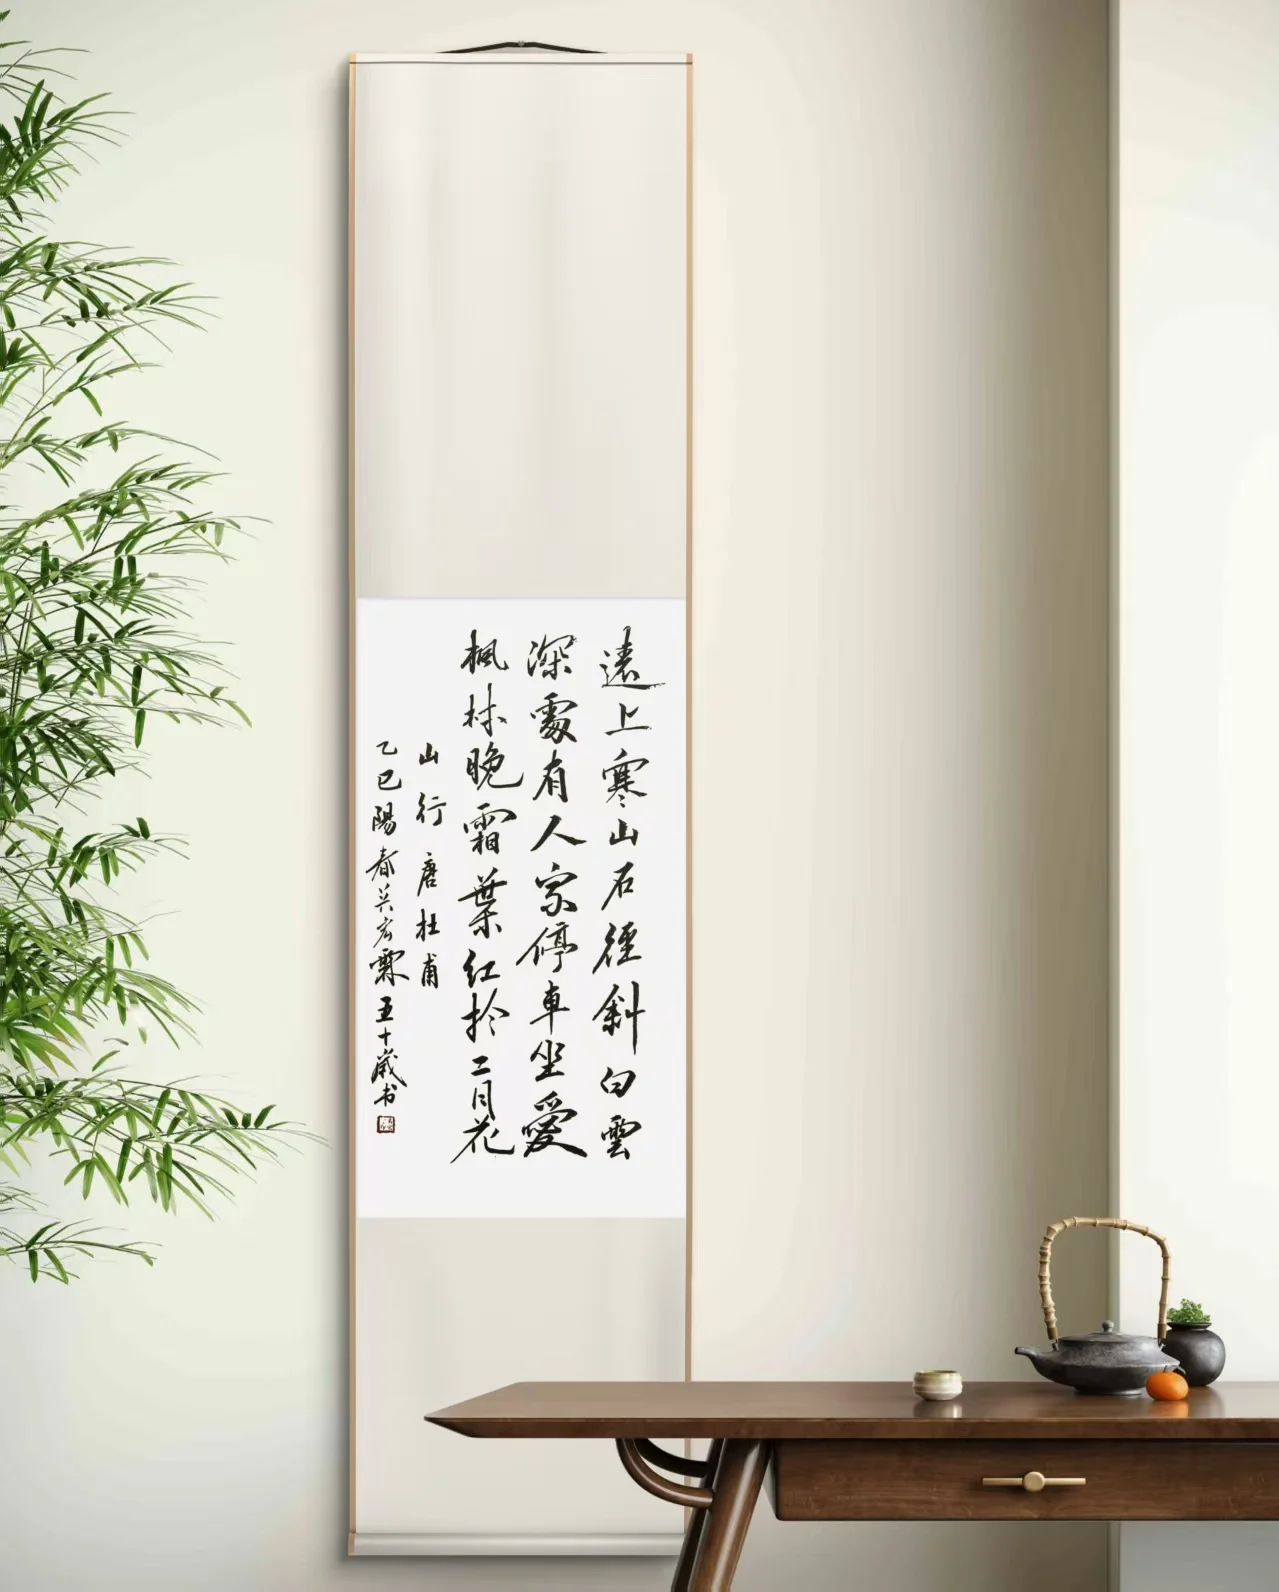 遠上寒山石徑斜白雲
深處有人家停車坐愛
楓林晚霜葉紅於二月花
山行 唐 杜甫
乙巳陽春宏霖五十歲书